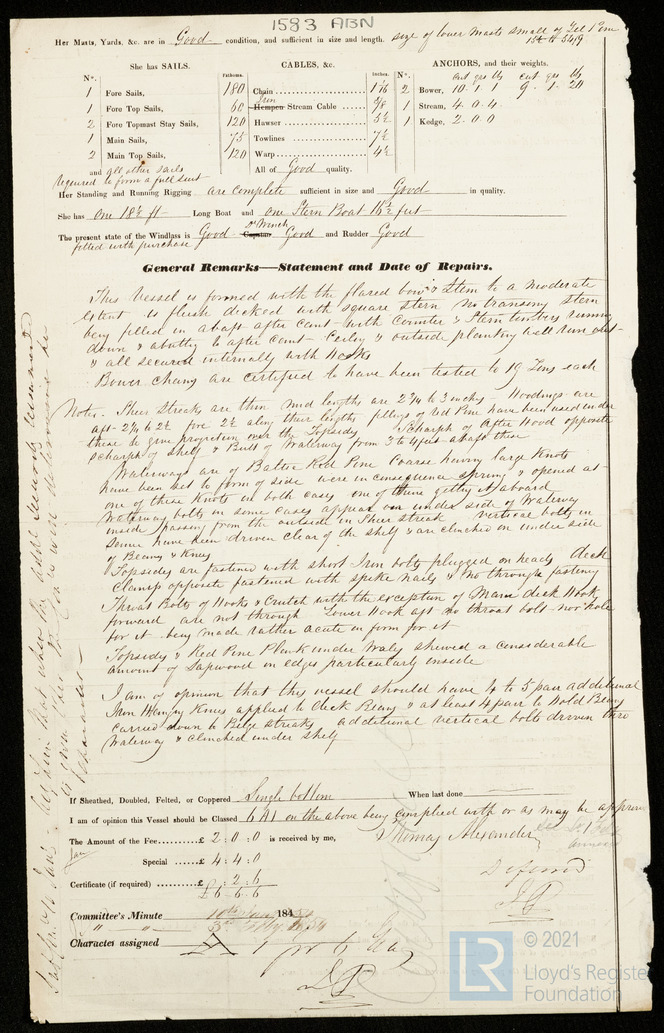 1583 ABN
Her Masts, Yards, &c. are in Good condition, and sufficient in size and length. size of lower masts small of
She has SAILS.
CABLES, &c.
ANCHORS, and their weights.
N°. Fathoms. Inches. N°. cwt qrs lb cwt qrs lb
1 Fore Sails, 180 Chain 2 Bower, 10 . 1 . 1 9 . 1 . 20
1 Fore Top Sails, 60 Hempen Iron Stream Cable 1 Stream, 4 . 0 . 4
2 Fore Topmast Stay Sails, 120 Hawser 5½ 1 Kedge, 2 . 0 . 0
1 Main Sails, 75 Towlines 7½
2 Main Top Sails, 120 Warp 4½
and all other sails All of Good quality.
required to form a full suit
Her Standing and Running Rigging are complete sufficient in size and Good in quality.
She has one 18½ ft Long Boat and one Stern Boat 15½ feet
The present state of the Windlass is Good Capstan Winch Good and Rudder Good
fitted with purchase
General Remarks—Statement and Date of Repairs.
This Vessel is formed with the flared bow & Stem to a moderate
extent is flush decked with square stern no transoms stern
being filled in abaft after cant with Counter & Stern timbers running
down & abutting to after cant Ceiling & outside planking well run aft
& all secured internally with Hooks
Bower Chains are certified to have been tested to 19 Tons each
Note. Sheer Streaks are thin mid lengths are 2¾ to 3 inches Hoodings are
aft 2¼ to 2½ fore 2½ along their lengths pieces of Red Pine have been used under
these to give projection over the Topsides Scharph of After Hood opposite
scharph of shelf & Butt of Waterway from 3 to 4 feet abaft these
Waterways are of Baltic Red Pine Coarse having large Knots
have been set to form of side were in consequence sprung & opened at
one of these Knots in both cases one of them getting it aboard
Waterway bolts in some cases appear on under side of Waterway
inside passing from the outside in Sheer streak vertical bolts in
some have been driven clear of the shelf & are clinched on under side
of Beams & Knees
Topsides are fastened with short Iron bolts plugged on heads deck
clamp opposite fastened with spike nails & no through fastening
Throat Bolts of Hooks & Crutch with the exception of Main deck Hook
forward are not through Lower Hook aft no throat bolt nor hole
for it being made rather acute in form for it
Topsides & Red Pine Plank under Wales shewed a considerable
amount of Sapwood on edges particularly inside
I am of opinion that this vessel should have 4 to 5 pair additional
Iron Hanging Knees applied to deck Beams & at least 4 pair to Hold Beams
carried down to Bilge streaks additional vertical bolts driven thro
Waterway & clinched under shelf
If Sheathed, Doubled, Felted, or Coppered Single bottom When last done
I am of opinion this Vessel should be Classed 6 A1 on the above being complied with or as may be approved
The Amount of the Fee......£ 2 : 0 : 0 is received by me, Thomas Alexander
Special ......£ 4 : 4 : 0
Certificate (if required) ......£ : 2 : 6
£6 . 6 . 6
Deferred
Committee's Minute 184
Character assigned A 1 for 6 Years
© 2021
LR
Lloyd's Register
Foundation